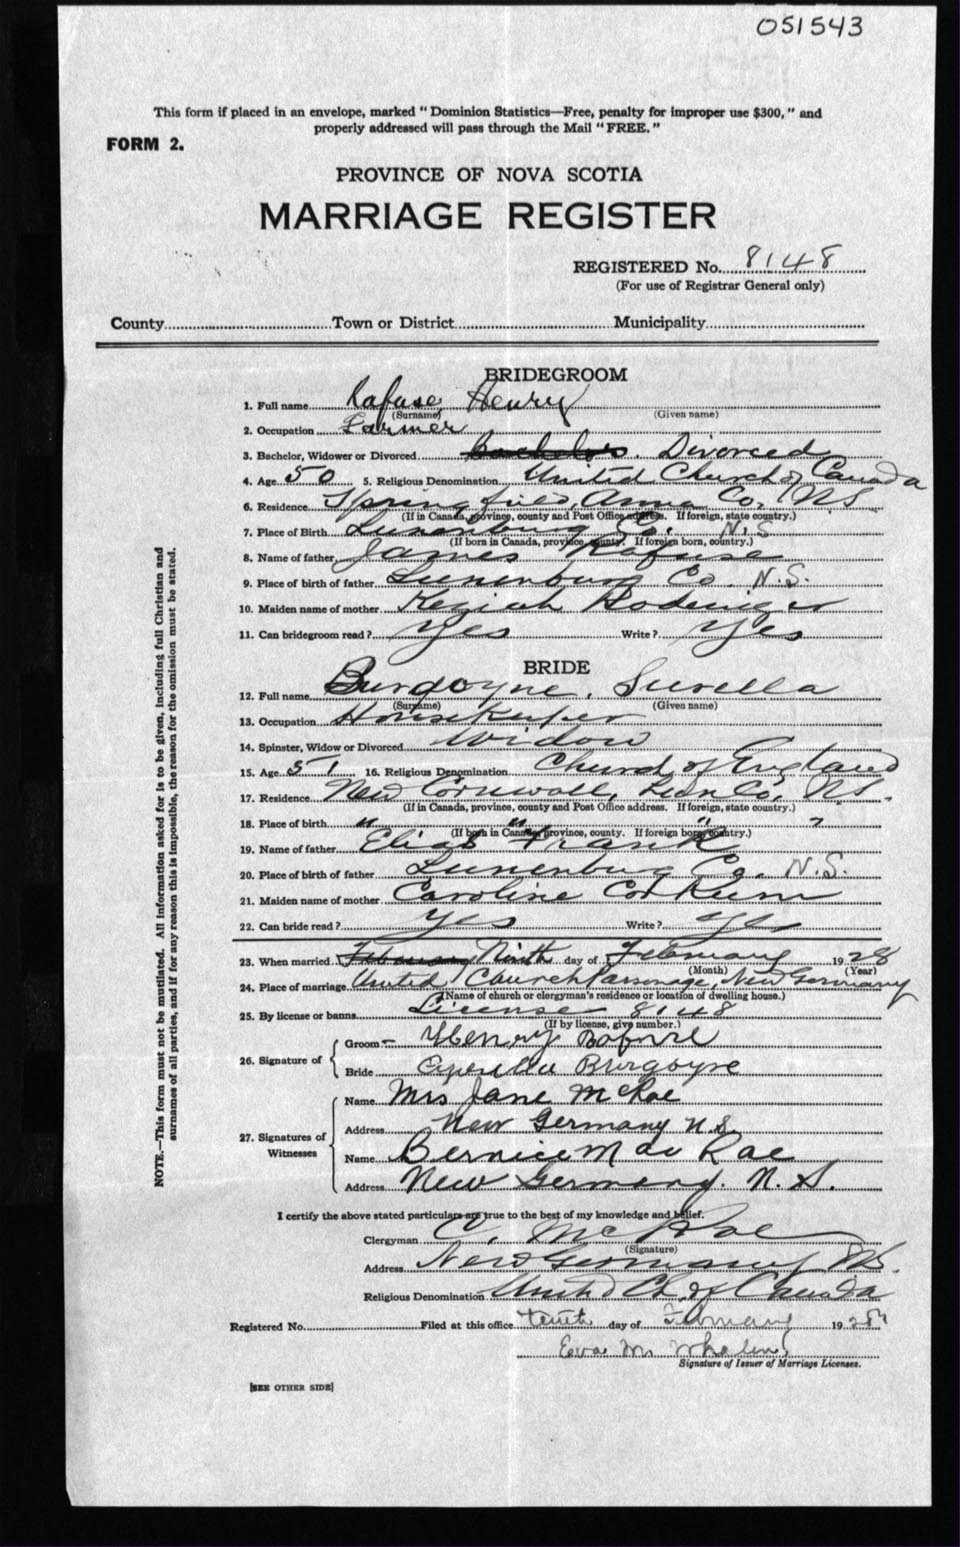 051543
This form if placed in an envelope, marked "Dominion Statistics—Free, penalty for improper use $300," and
properly addressed will pass through the Mail "FREE."
FORM 2.
PROVINCE OF NOVA SCOTIA
MARRIAGE REGISTER
REGISTERED No. 8148
(For use of Registrar General only)
County Town or District Municipality
BRIDEGROOM
1. Full name Rafuse, Henry
(Surname) (Given name)
2. Occupation Farmer
3. Bachelor, Widower or Divorced Bachelor. Divorced
4. Age 50 5. Religious Denomination United Church of Canada
6. Residence Springfield, Anna Co, N.S.
(If in Canada, province, county and Post Office address. If foreign, state country.)
7. Place of Birth Lunenburg Co. N.S
(If born in Canada, province, county. If foreign born, country.)
8. Name of father James Rafuse
9. Place of birth of father Lunenburg Co. N.S.
10. Maiden name of mother Keziah
11. Can bridegroom read? Yes Write? Yes
BRIDE
12. Full name Burgoyne, Surella
(Surname) (Given name)
13. Occupation Housekeeper
14. Spinster, Widow or Divorced Widow
15. Age 51 16. Religious Denomination Church of England
17. Residence New Cornwall, Lun Co, N.S.
(If in Canada, province, county and Post Office address. If foreign, state country.)
18. Place of birth " " " "
(If born in Canada, province, county. If foreign born, country.)
19. Name of father Elias Frank
20. Place of birth of father Lunenburg Co. N.S.
21. Maiden name of mother Caroline Corkum
22. Can bride read? Yes Write? Yes
23. When married February Ninth day of February 1928
(Month) (Year)
24. Place of marriage United Church Parsonage, New Germany
(Name of church or clergyman's residence or location of dwelling house.)
25. By license or banns License 8148
(If by license, give number.)
26. Signature of
Groom Henry Rafuse
Bride Burgoyne
27. Signatures of Witnesses
Name Mrs Jane McRae
Address New Germany N.S.
Name Bernice Mac Rae
Address New Germany. N. S.
I certify the above stated particulars are true to the best of my knowledge and belief.
Clergyman C. McRae
(Signature)
Address New Germany N.S.
Religious Denomination United Ch. of Canada
Registered No. Filed at this office tenth day of February 1928
Eva M. Whalen
Signature of Issuer of Marriage Licenses.
[SEE OTHER SIDE]
NOTE.—This form must not be mutilated. All information asked for is to be given, including full Christian and
surnames of all parties, and if for any reason this is impossible, the reason for the omission must be stated.